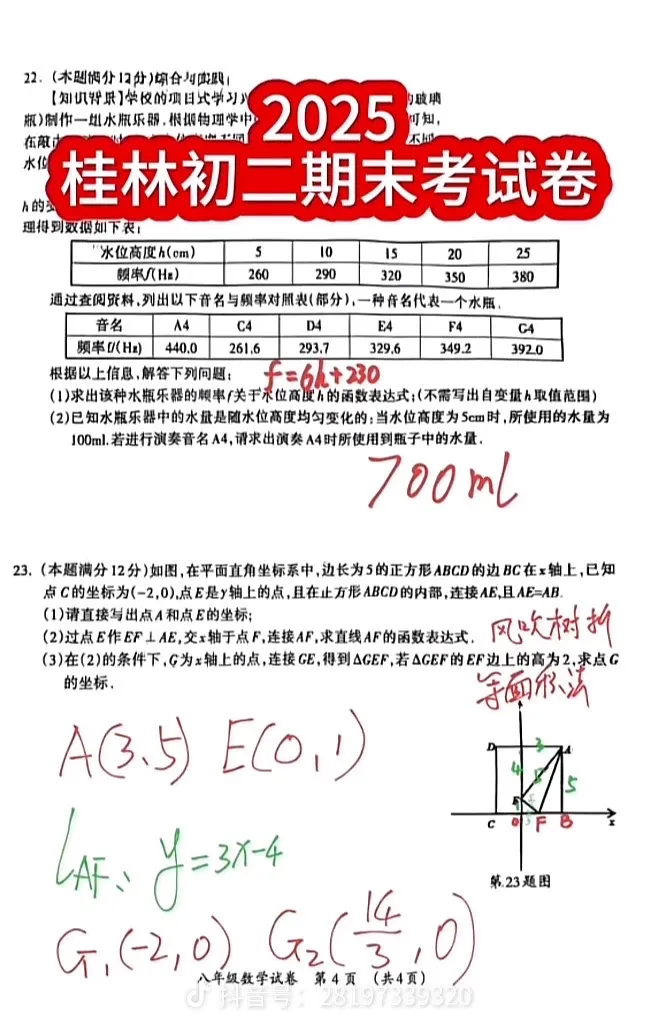 22.(本题满分12分)综合与实践:
【知识背景】学校的项目式学习 的玻璃
瓶)制作一组水瓶乐器.根据物理学中 可知,
2025
桂林初二期末考试卷
水位
h的变
理得到数据如下表:
水位高度h(cm) 5 10 15 20 25
频率f(Hz) 260 290 320 350 380
通过查阅资料,列出以下音名与频率对照表(部分),一种音名代表一个水瓶.
音名 A4 C4 D4 E4 F4 G4
频率f(Hz) 440.0 261.6 293.7 329.6 349.2 392.0
根据以上信息,解答下列问题:
f=6h+230
(1)求出该种水瓶乐器的频率f关于水位高度h的函数表达式;(不需写出自变量h取值范围)
(2)已知水瓶乐器中的水量是随水位高度均匀变化的:当水位高度为5cm时,所使用的水量为
100ml.若进行演奏音名A4,请求出演奏A4时所使用到瓶子中的水量.
700ml
23.(本题满分12分)如图,在平面直角坐标系中,边长为5的正方形ABCD的边BC在x轴上,已知
点C的坐标为(-2,0),点E是y轴上的点,且在正方形ABCD的内部,连接AE,且AE=AB.
(1)请直接写出点A和点E的坐标;
(2)过点E作EF⊥AE,交x轴于点F,连接AF,求直线AF的函数表达式.
风吹树折
(3)在(2)的条件下,G为x轴上的点,连接GE,得到△GEF,若△GEF的EF边上的高为2,求点G
的坐标.
等面积法
A(3、5) E(0,1)
D 3 A
4 5 5
E
C O F B x
第23题图
L AF: y=3x-4
G₁(-2,0) G₂(14/3,0)
八年级数学试卷 第4页 (共4页)
抖音号: 28197339320